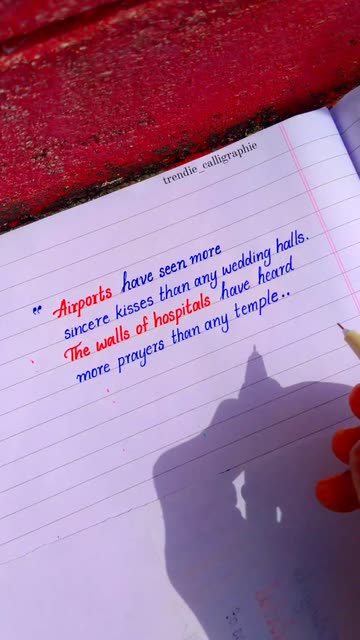 trendie_calligraphie
“ Airports have seen more
sincere kisses than any wedding halls.
The walls of hospitals have heard
more prayers than any temple..